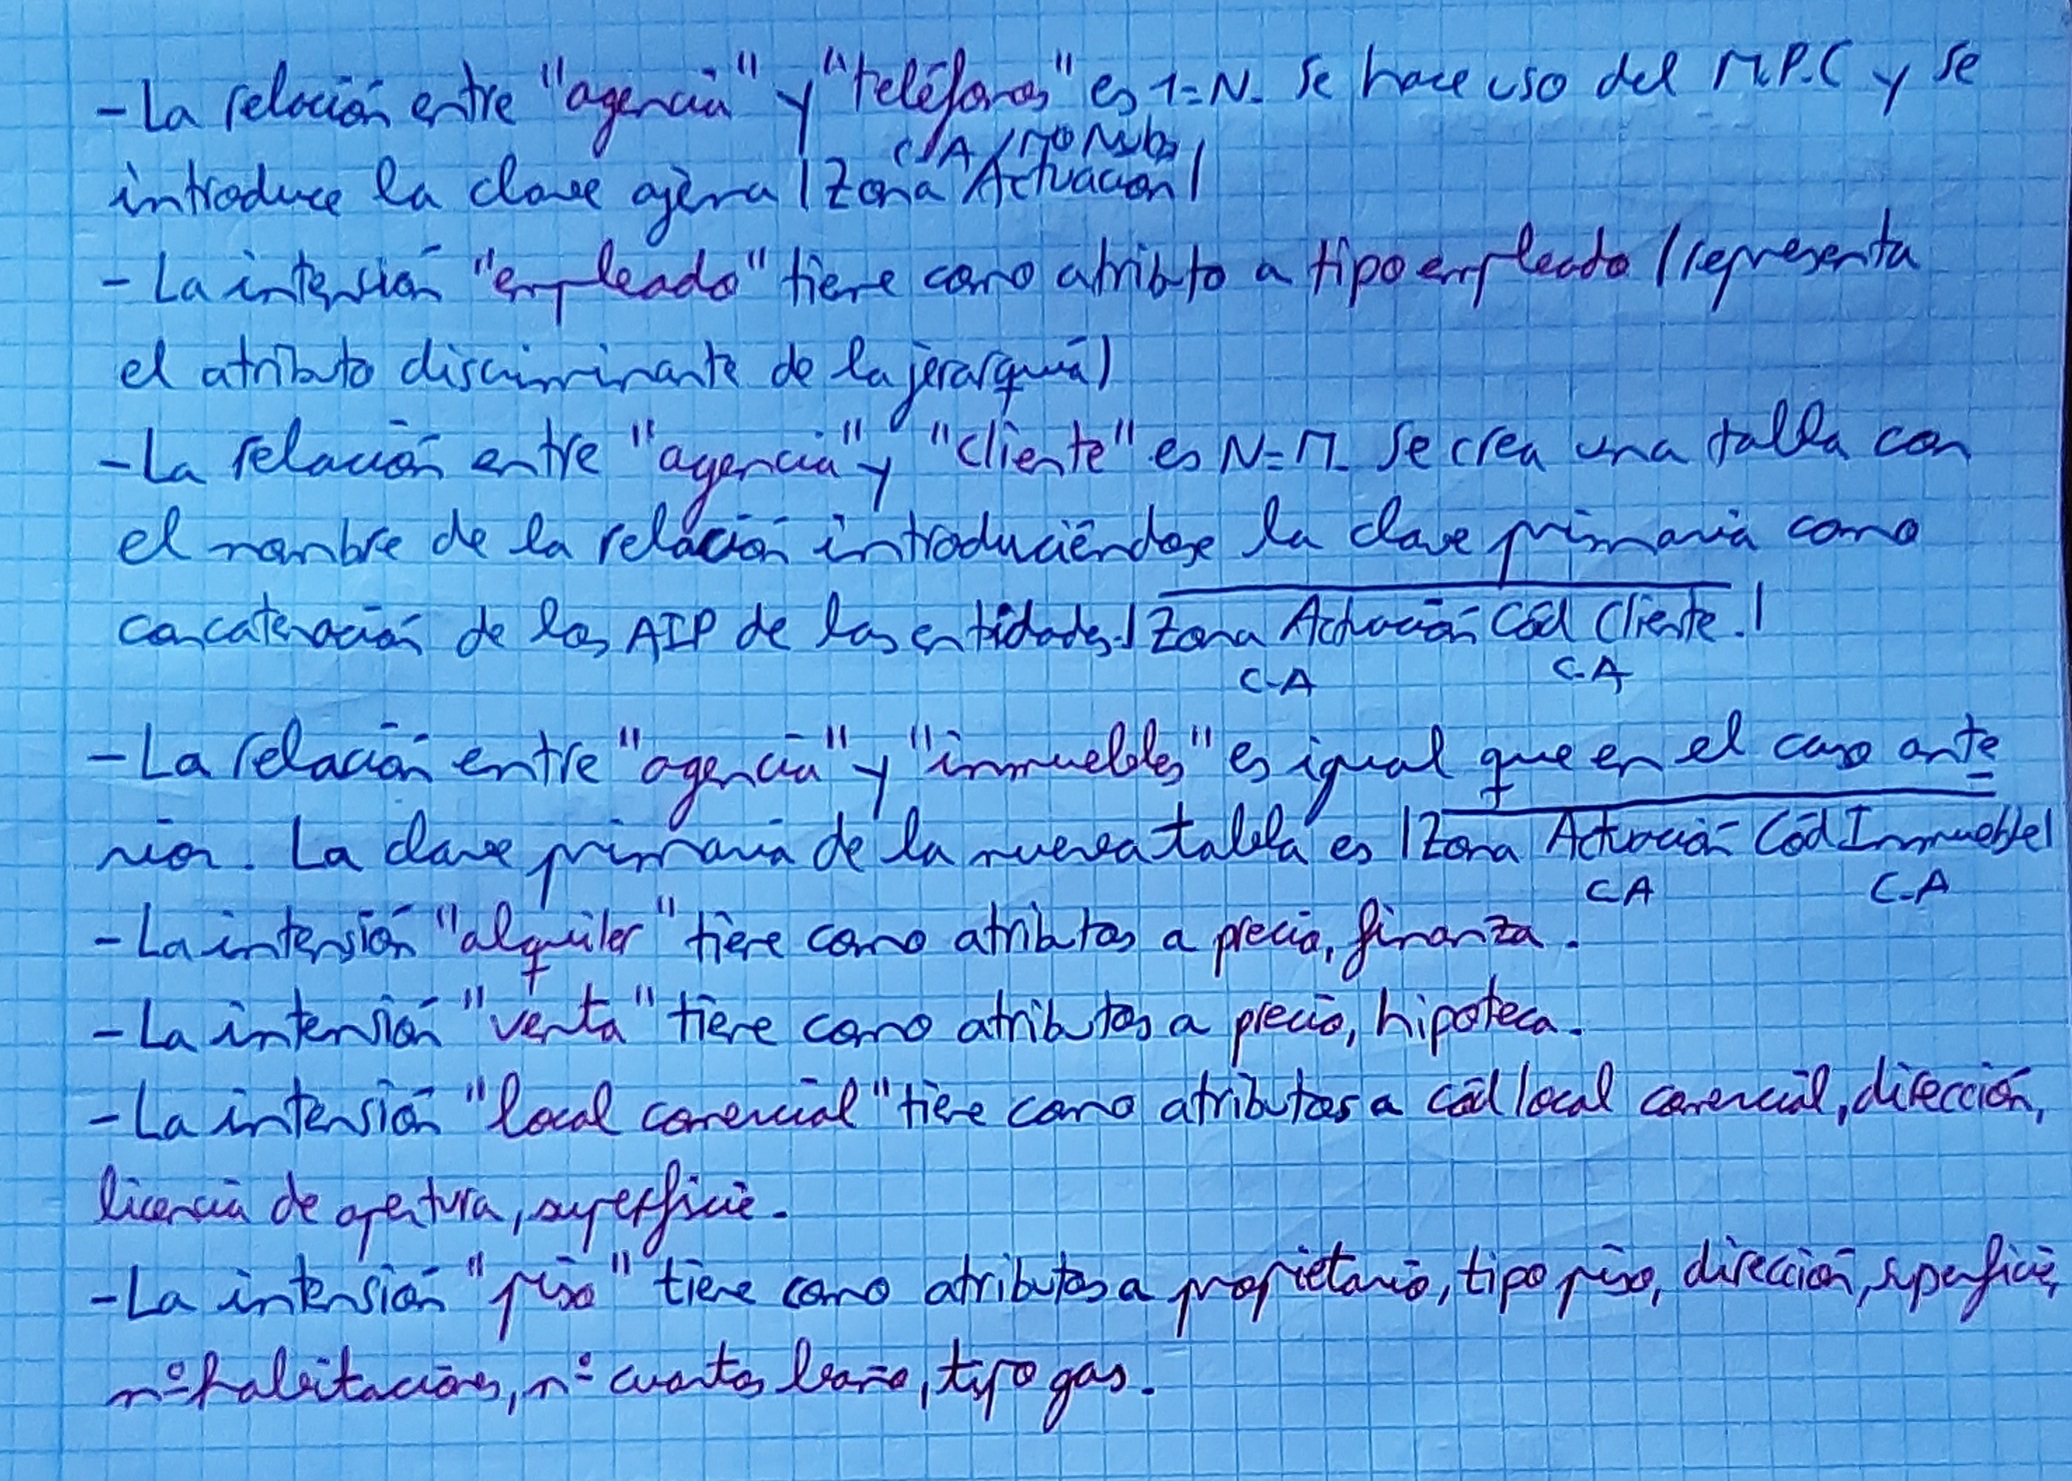 -La relación entre "agencia" y "teléfonos" es 1=N. Se hace uso del M.P.C y se
C.A/no Nulo
introduce la clave ajena |Zona Actuación|
-La intensión "empleado" tiene como atributo a tipo empleado (representa
el atributo discriminante de la jerarquía)
-La relación entre "agencia" y "cliente" es N=M. Se crea una tabla con
el nombre de la relación introduciéndose la clave primaria como
concatenación de los AIP de las entidades. |Zona Actuación Cód Cliente.|
C-A C.A
-La relación entre "agencia" y "inmuebles" es igual que en el caso ante
rior. La clave primaria de la nueva tabla es |Zona Actuación Cód Inmueble|
CA C-A
-La intensión "alquiler" tiene como atributos a precio, finanza.
-La intensión "venta" tiene como atributos a precio, hipoteca.
-La intensión "local comercial" tiene como atributos a cód local comercial, dirección,
licencia de apertura, superficie.
-La intensión "piso" tiene como atributos a propietario, tipo piso, dirección, superficie,
nº habitaciones, nº cuartos baño, tipo gas.